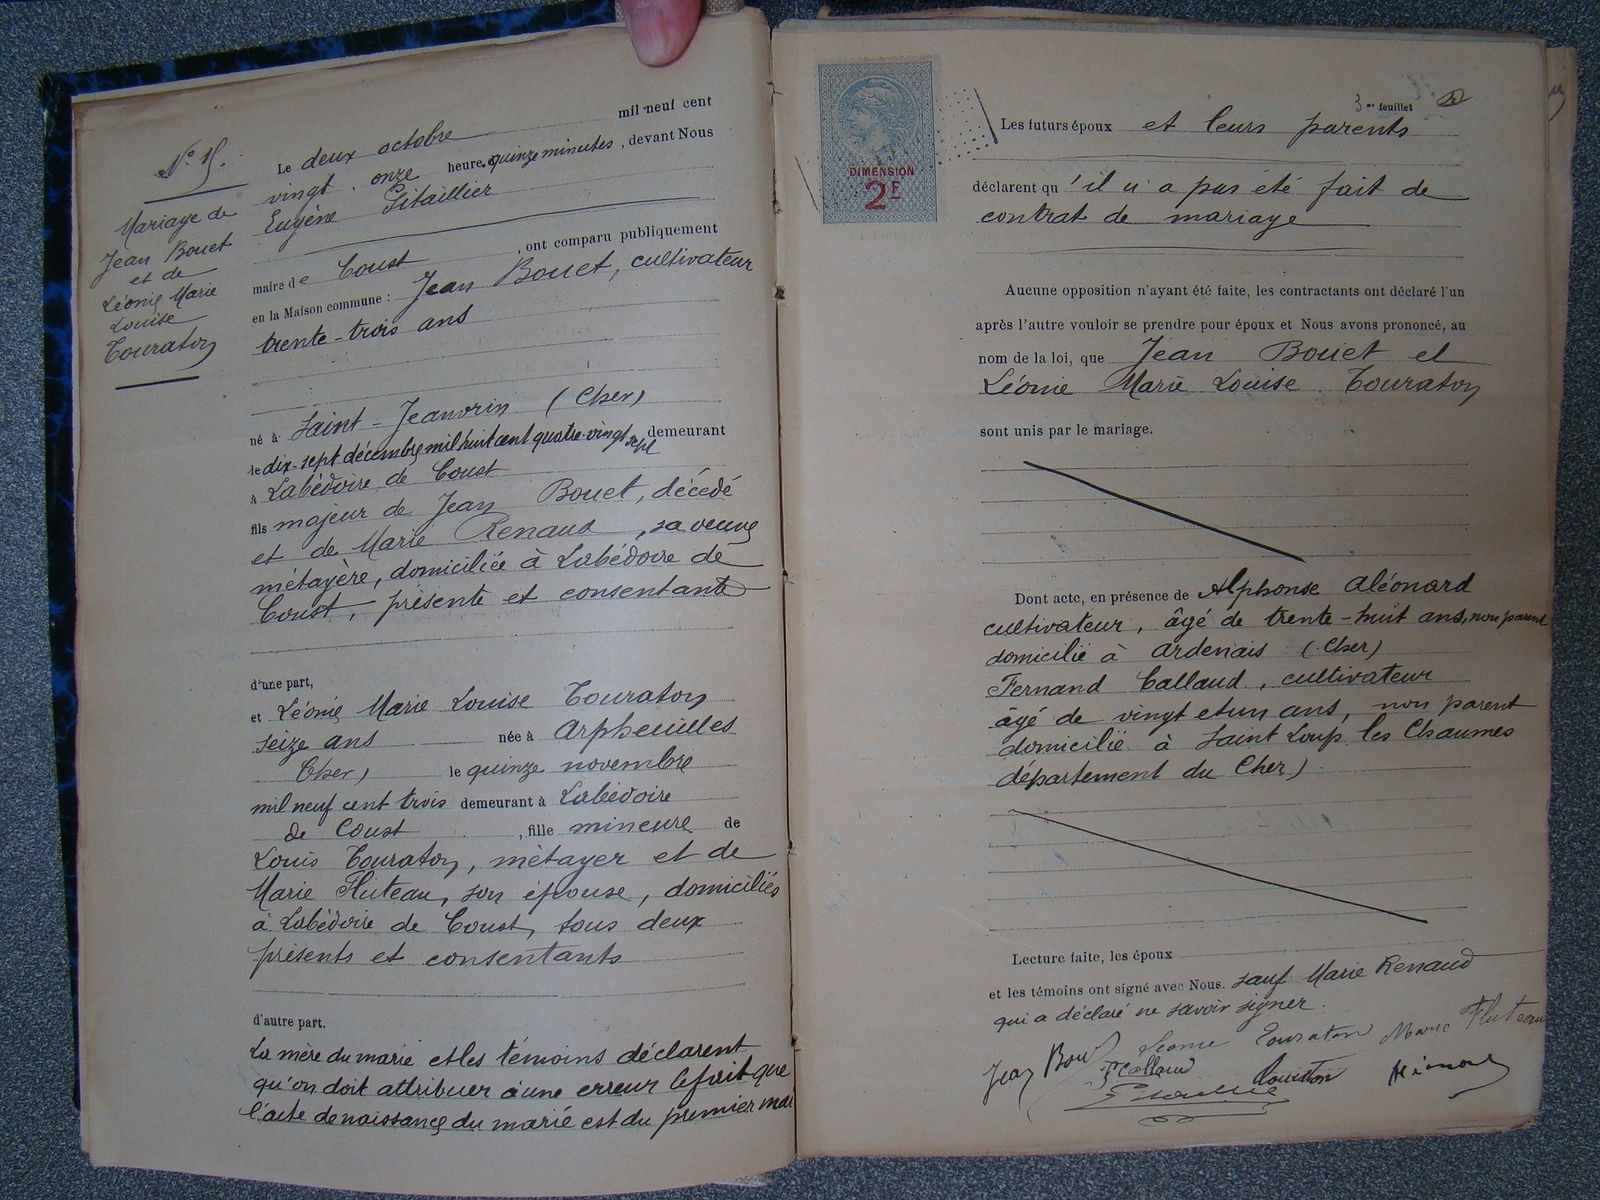 N° 15.
Mariage de
Jean Bouet
et de
Léonie Marie
Louise
Touraton
Le deux octobre mil neuf cent
vingt, onze heures quinze minutes, devant Nous
Eugène Pitaillier
maire de Coust, ont comparu publiquement
en la Maison commune : Jean Bouet, cultivateur
trente-trois ans
né à Saint-Jeanvrin (Cher)
le dix-sept décembre mil huit cent quatre-vingt sept demeurant
à Labédoire de Coust
fils majeur de Jean Bouet, décédé
et de Marie Renaud, sa veuve
métayère, domiciliée à Labédoire de
Coust, présente et consentante
d'une part,
et Léonie Marie Louise Touraton
seize ans née à Arpheuilles
Cher) le quinze novembre
mil neuf cent trois demeurant à Labédoire
de Coust, fille mineure de
Louis Touraton, métayer et de
Marie Fluteau, son épouse, domiciliés
à Labédoire de Coust, tous deux
présents et consentants
d'autre part.
La mère du marié et les témoins déclarent
qu'on doit attribuer à une erreur le fait que
l'acte de naissance du marié est du premier mai
DIMENSION
2F
3me feuillet
Les futurs époux et leurs parents
déclarent qu'il n'a pas été fait de
contrat de mariage
Aucune opposition n'ayant été faite, les contractants ont déclaré l'un
après l'autre vouloir se prendre pour époux et Nous avons prononcé, au
nom de la loi, que Jean Bouet et
Léonie Marie Louise Touraton
sont unis par le mariage.
Dont acte, en présence de Alphonse Aléonard
cultivateur, âgé de trente-huit ans, non parent
domicilié à Ardenais (Cher)
Fernand Callaud, cultivateur
âgé de vingt et un ans, non parent
domicilié à Saint Loup les Chaumes
département du Cher)
Lecture faite, les époux
et les témoins ont signé avec Nous. sauf Marie Renaud
qui a déclaré ne savoir signer.
Jean Bouet Léonie Touraton Marie Fluteau
F Callaud Touraton